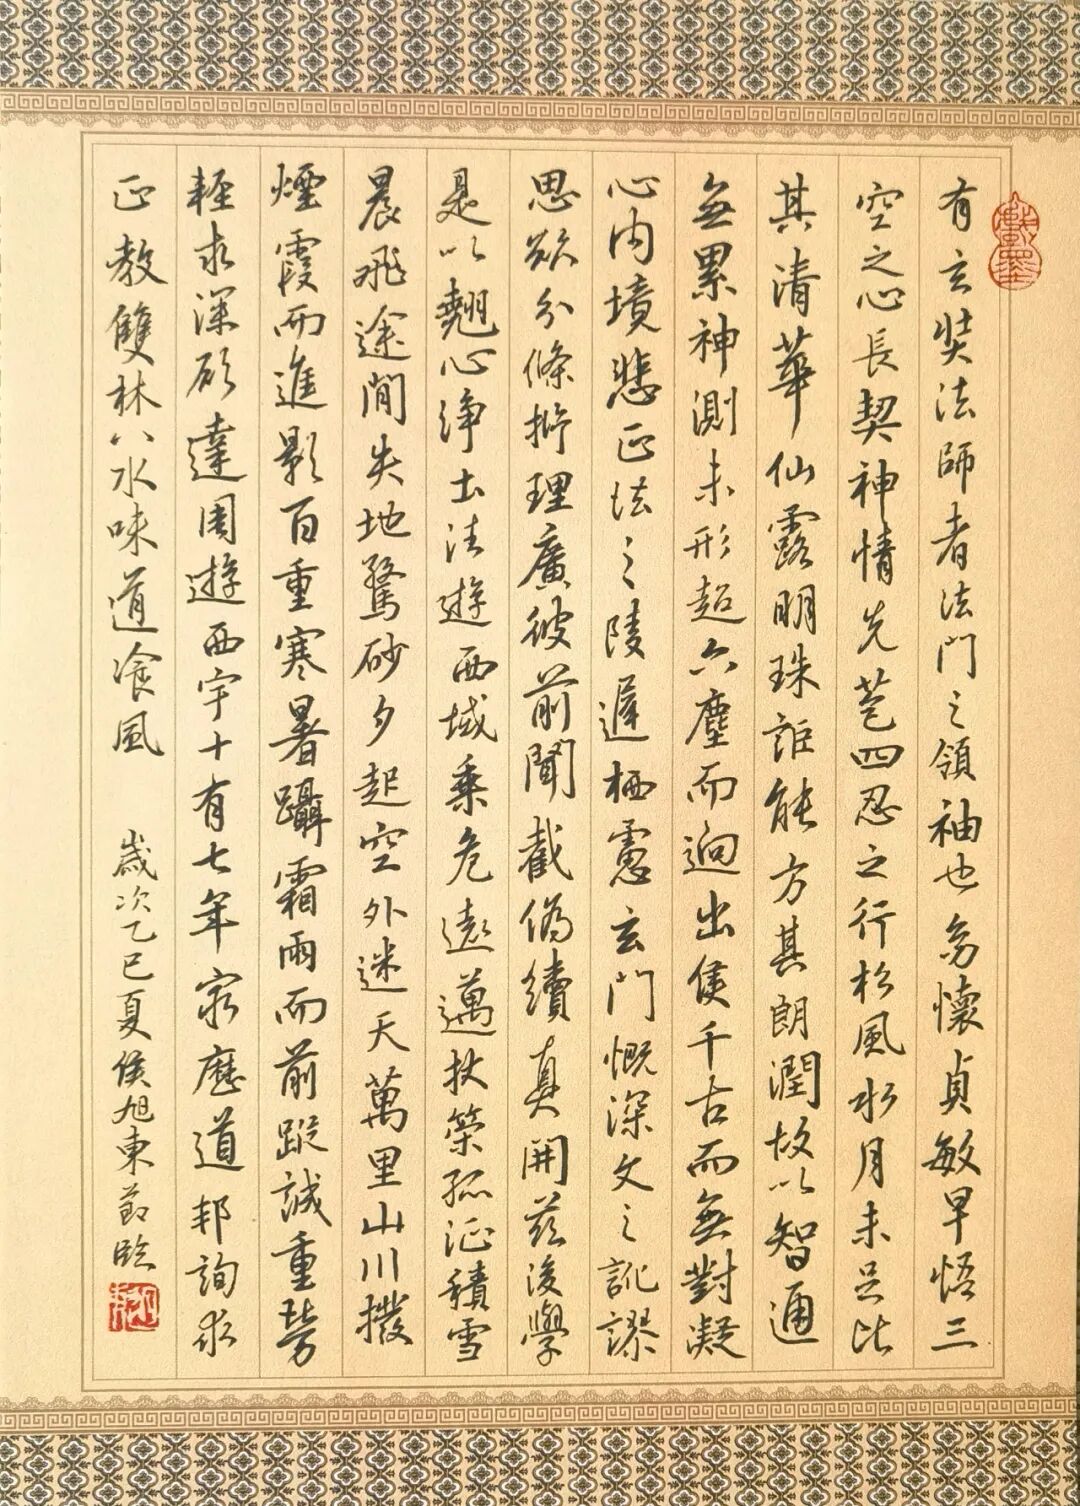 有玄奘法師者法門之領袖也㓜懷貞敏早悟三
空之心長契神情先苞四忍之行松風水月未足比
其清華仙露明珠詎能方其朗潤故以智通
無累神測未形超六塵而迥出隻千古而無對凝
心內境悲正法之陵遲栖慮玄門慨深文之訛謬
思欲分條析理廣彼前聞截偽續真開茲後學
是以翹心淨土法遊西域乘危遠邁杖策孤征積雪
晨飛途間失地驚砂夕起空外迷天萬里山川撥
煙霞而進影百重寒暑躡霜雨而前蹤誠重勞
輕求深願達周遊西宇十有七年窮歷道邦詢求
正教雙林八水味道飡風
歲次乙巳夏侯旭東節臨